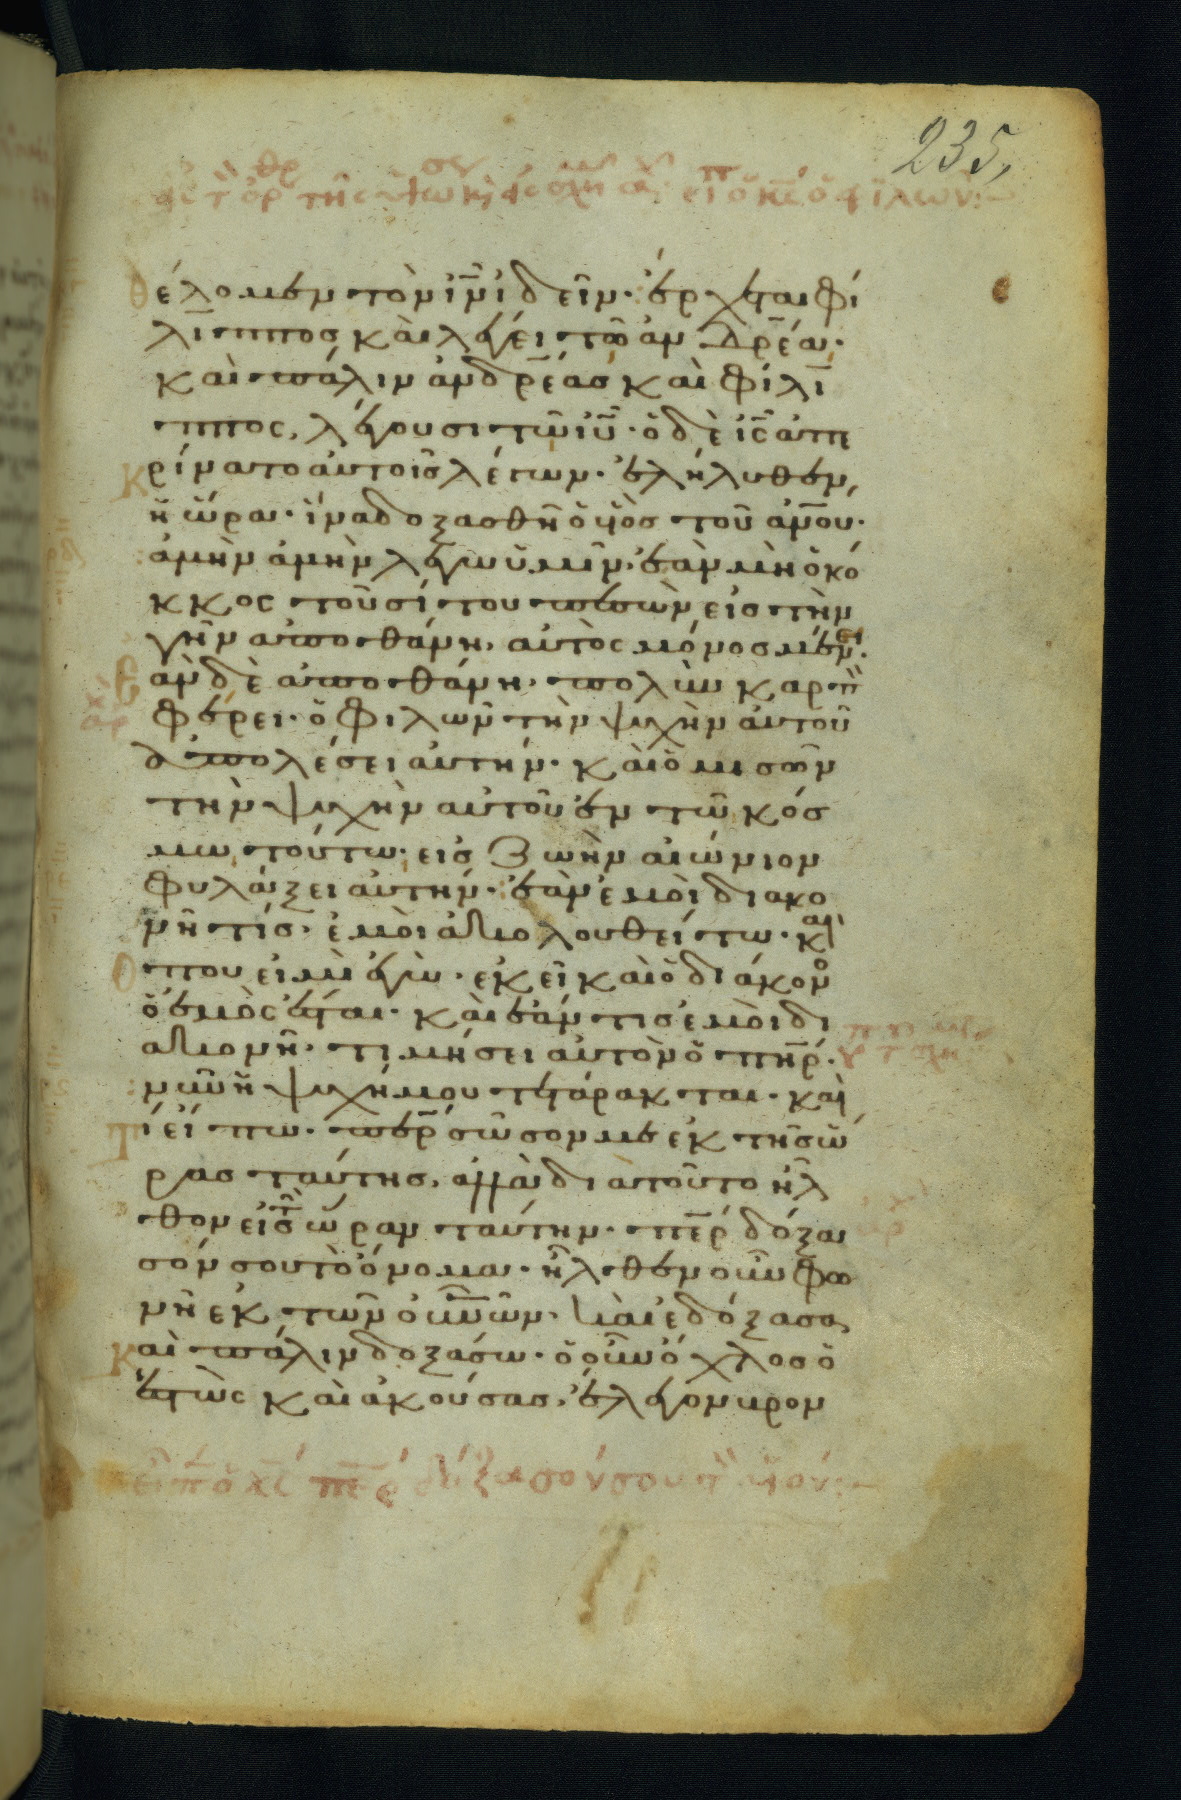 235,
θέλομεν τὸν ιν ἰδεῖν· ἔρχεται φί
λιππος καὶ λέγει τῶ ἀνδρέα·
καὶ πάλιν ἀνδρέας καὶ φίλι
ππος, λέγουσι τῶ ιυ· ὁ δὲ ις ἀπε
κρίνατο αὐτοῖς λέγων· ἐλήλυθεν,
ἡ ὥρα· ἵνα δοξασθῆ ὁ υἱὸς τοῦ ανου·
ἀμὴν ἀμὴν λέγω ὑμῖν· ἐὰν μὴ ὁ κό
κκος τοῦ σίτου πεσὼν εἰς τὴν
γῆν ἀποθάνη, αὐτὸς μόνος μένει·
Ἐὰν δὲ ἀποθάνη· πολὺν καρπὸν
φέρει· ὁ φιλῶν τὴν ψυχὴν αὐτοῦ
ἀπολέσει αὐτήν· καὶ ὁ μισῶν
τὴν ψυχὴν αὐτοῦ ἐν τῶ κόσ
μω τούτω· εἰς ζωὴν αἰώνιον
φυλάξει αὐτήν· ἐὰν ἐμοὶ διακο
νῆ τίς· ἐμοὶ ἀκολουθείτω· καὶ
Ὅπου εἰμὶ ἐγὼ· ἐκεῖ καὶ ὁ διάκονος
ὁ ἐμὸς ἔσται· καὶ ἐάν τις ἐμοὶ δι
ακονῆ· τιμήσει αὐτὸν ὁ πηρ·
νῦν ἡ ψυχή μου τετάρακται· καὶ
Τί εἴπω· περ σῶσον με ἐκ τῆς ὥ
ρας ταύτης, ἀλλὰ διὰ τοῦτο ἦλ
θον εἰς τὴν ὥραν ταύτην· περ δόξα
σόν σου τὸ ὄνομα· ἦλθεν οὖν φω
νὴ ἐκ τῶν οὐνῶν· καὶ ἐδόξασα,
Καὶ πάλιν δοξάσω· ὁ οὖν ὄχλος ὁ
ἑστὼς καὶ ἀκούσας, ἔλεγον
εἶπ ὁ κς περ δόξασόν σου τ υἱόν:—